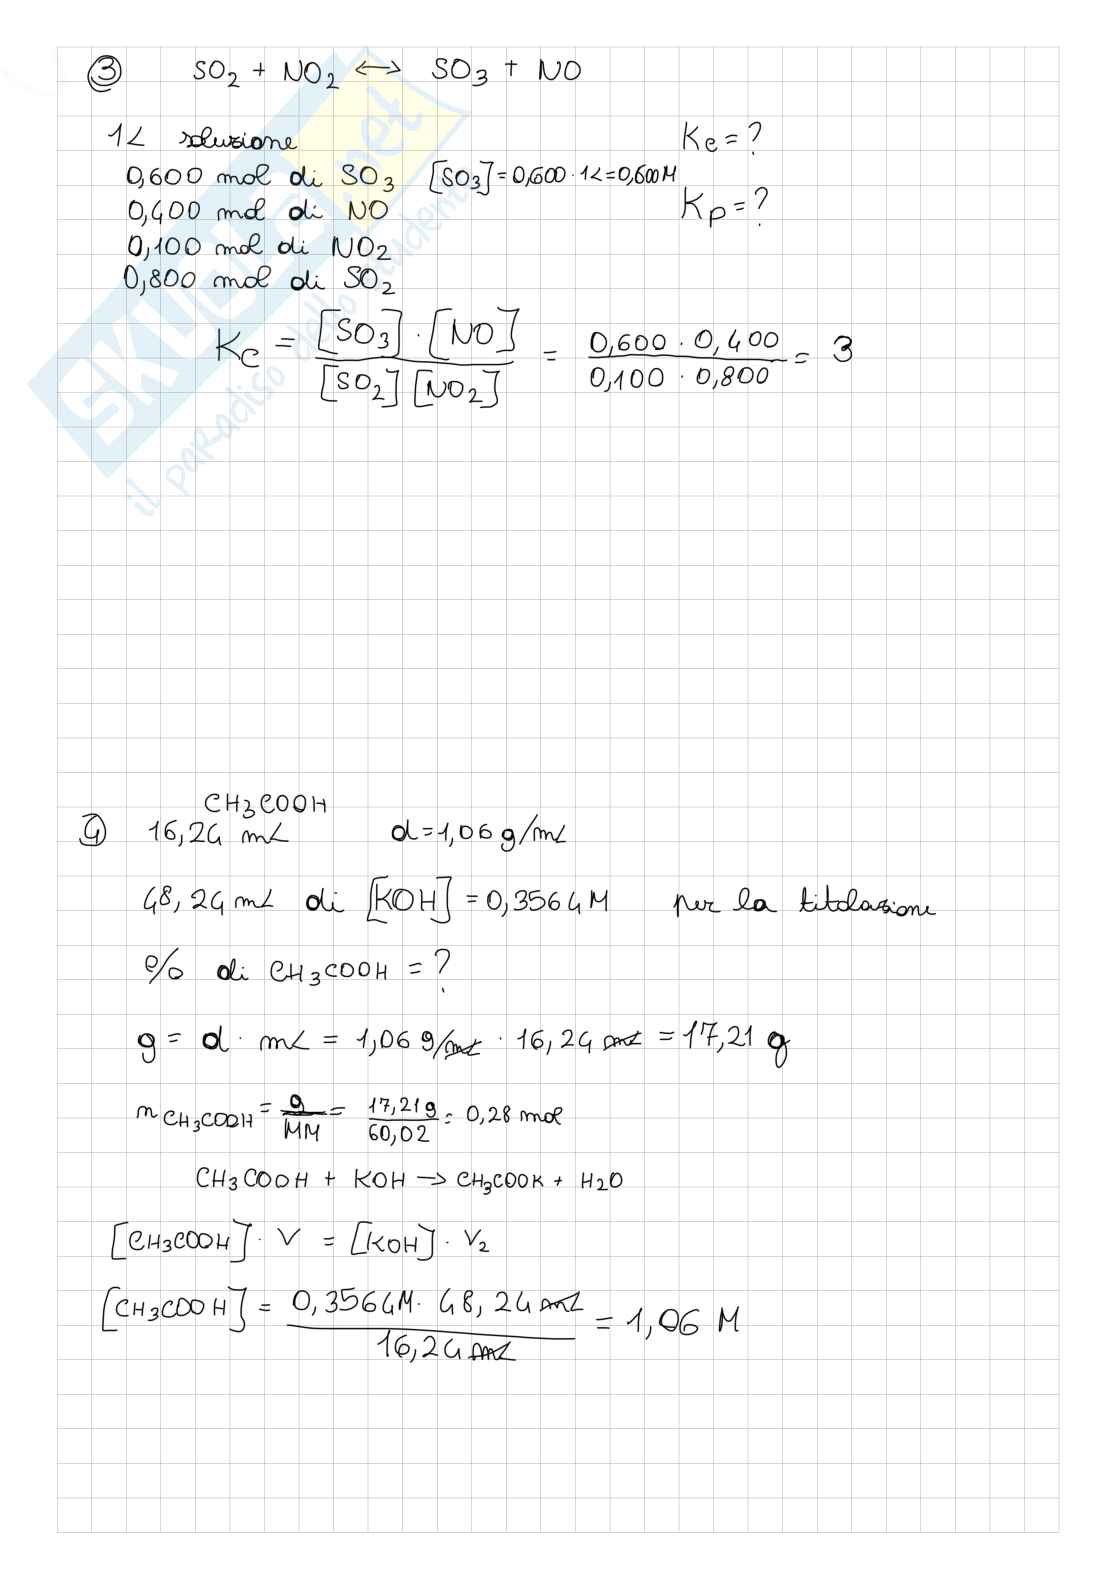 ③ SO₂ + NO₂ ⟷ SO₃ + NO
1L soluzione Kc = ?
0,600 mol di SO₃ [SO₃] = 0,600 · 1L = 0,600M
0,400 mol di NO Kp = ?
0,100 mol di NO₂
0,800 mol di SO₂
Kc = [SO₃] · [NO] / [SO₂] [NO₂] = 0,600 · 0,400 / 0,100 · 0,800 = 3
SKUOLA.net
il paradiso dello studente
CH₃COOH
④ 16,24 mL d = 1,06 g/mL
48,24 mL di [KOH] = 0,3564M per la titolazione
% di CH₃COOH = ?
g = d · mL = 1,06 g/mL · 16,24 mL = 17,21 g
n CH₃COOH = g / MM = 17,21g / 60,02 = 0,28 mol
CH₃COOH + KOH → CH₃COOK + H₂O
[CH₃COOH] · V = [KOH] · V₂
[CH₃COOH] = 0,3564M · 48,24 mL / 16,24 mL = 1,06 M